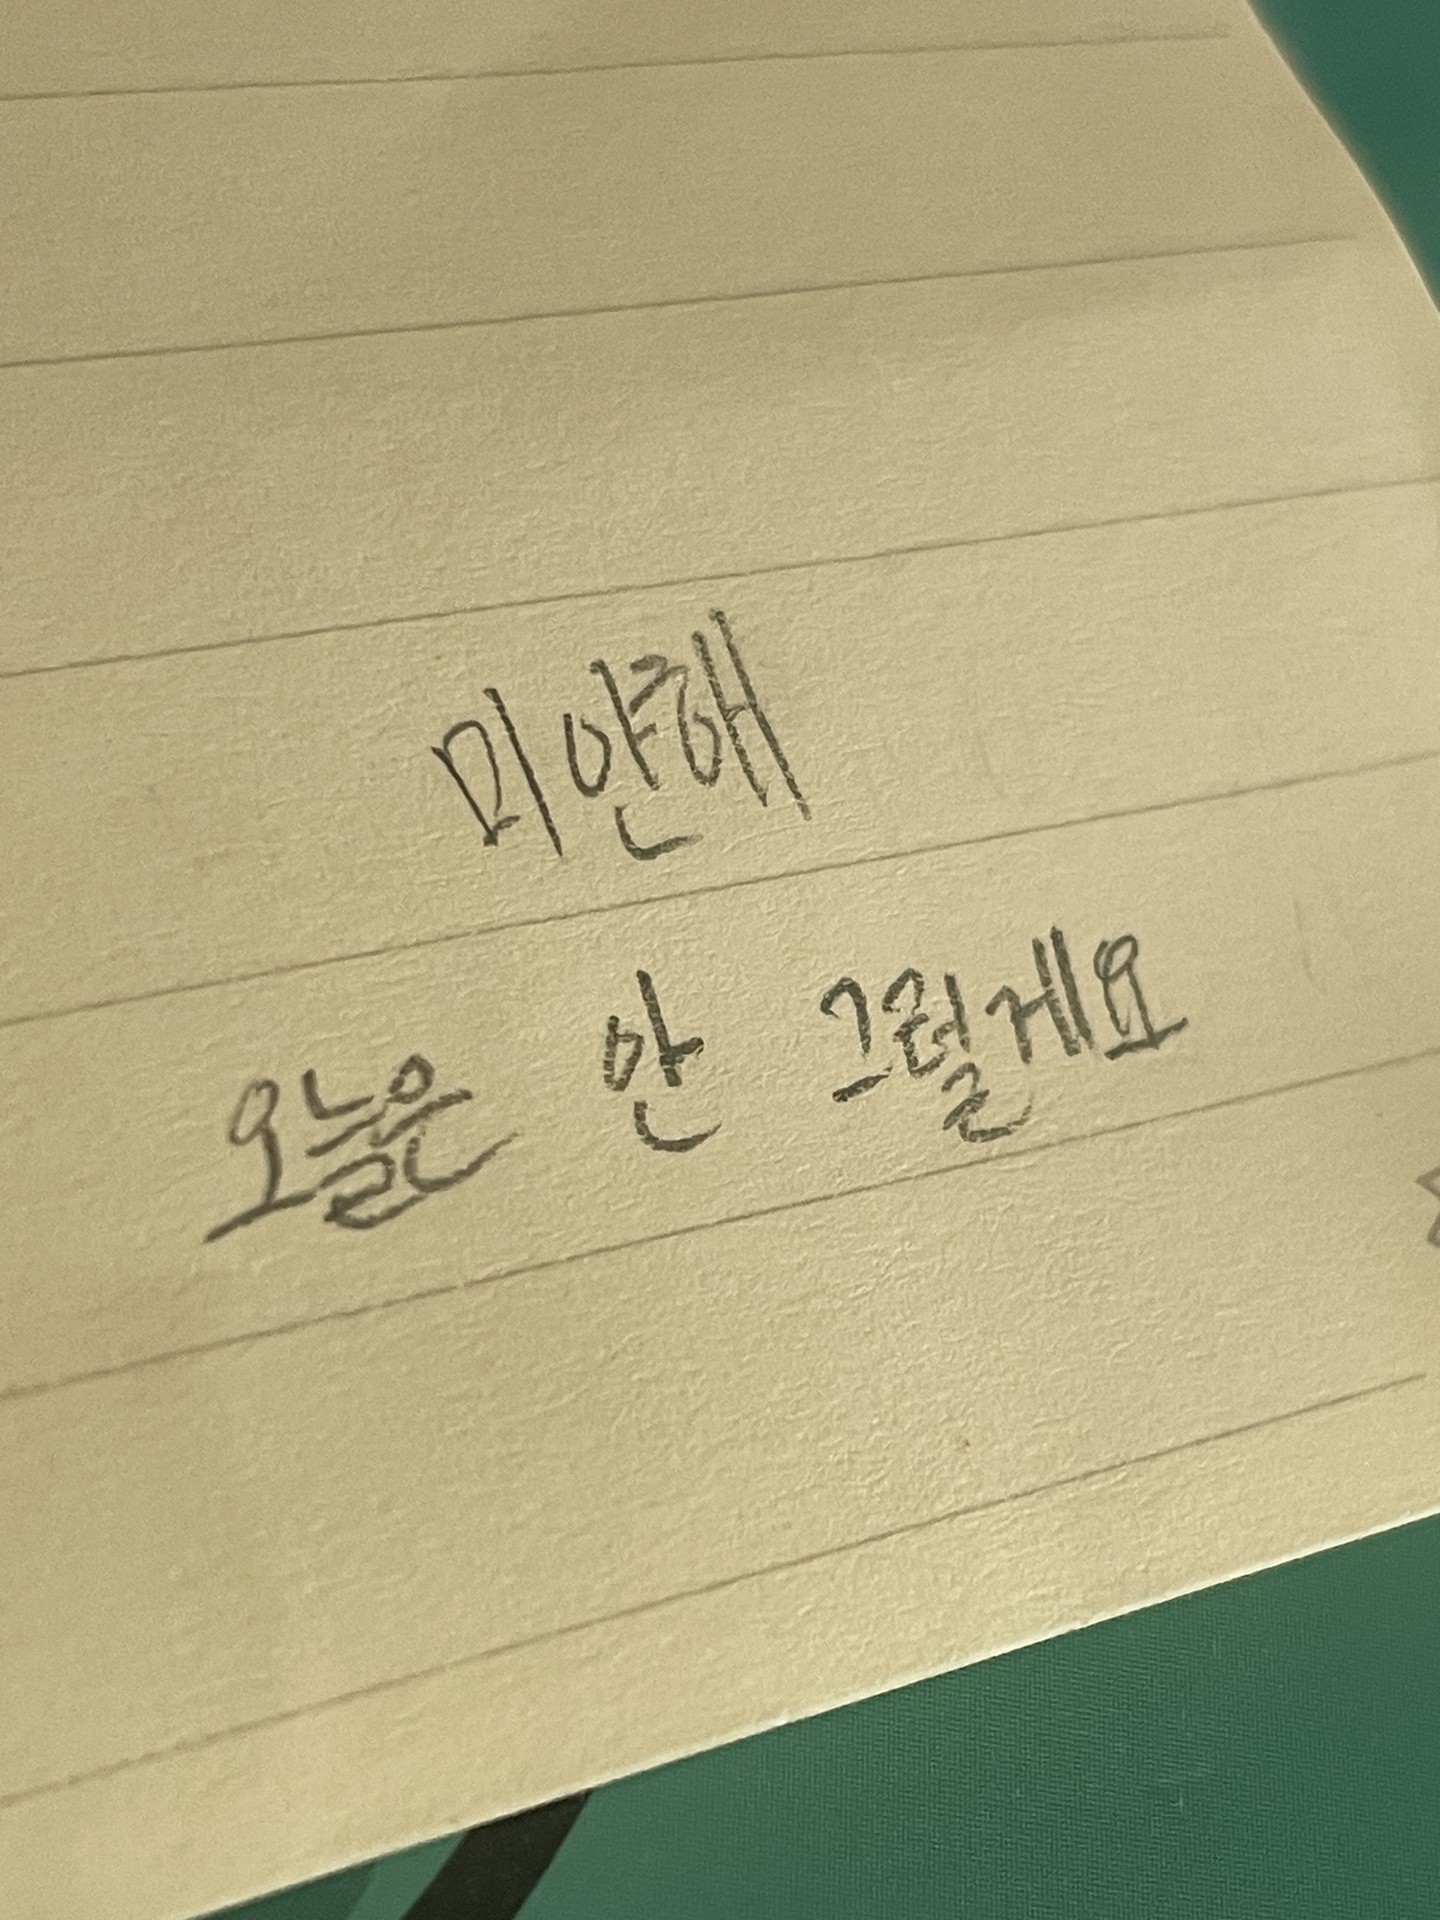 미안해
오늘은 안 그럴게요